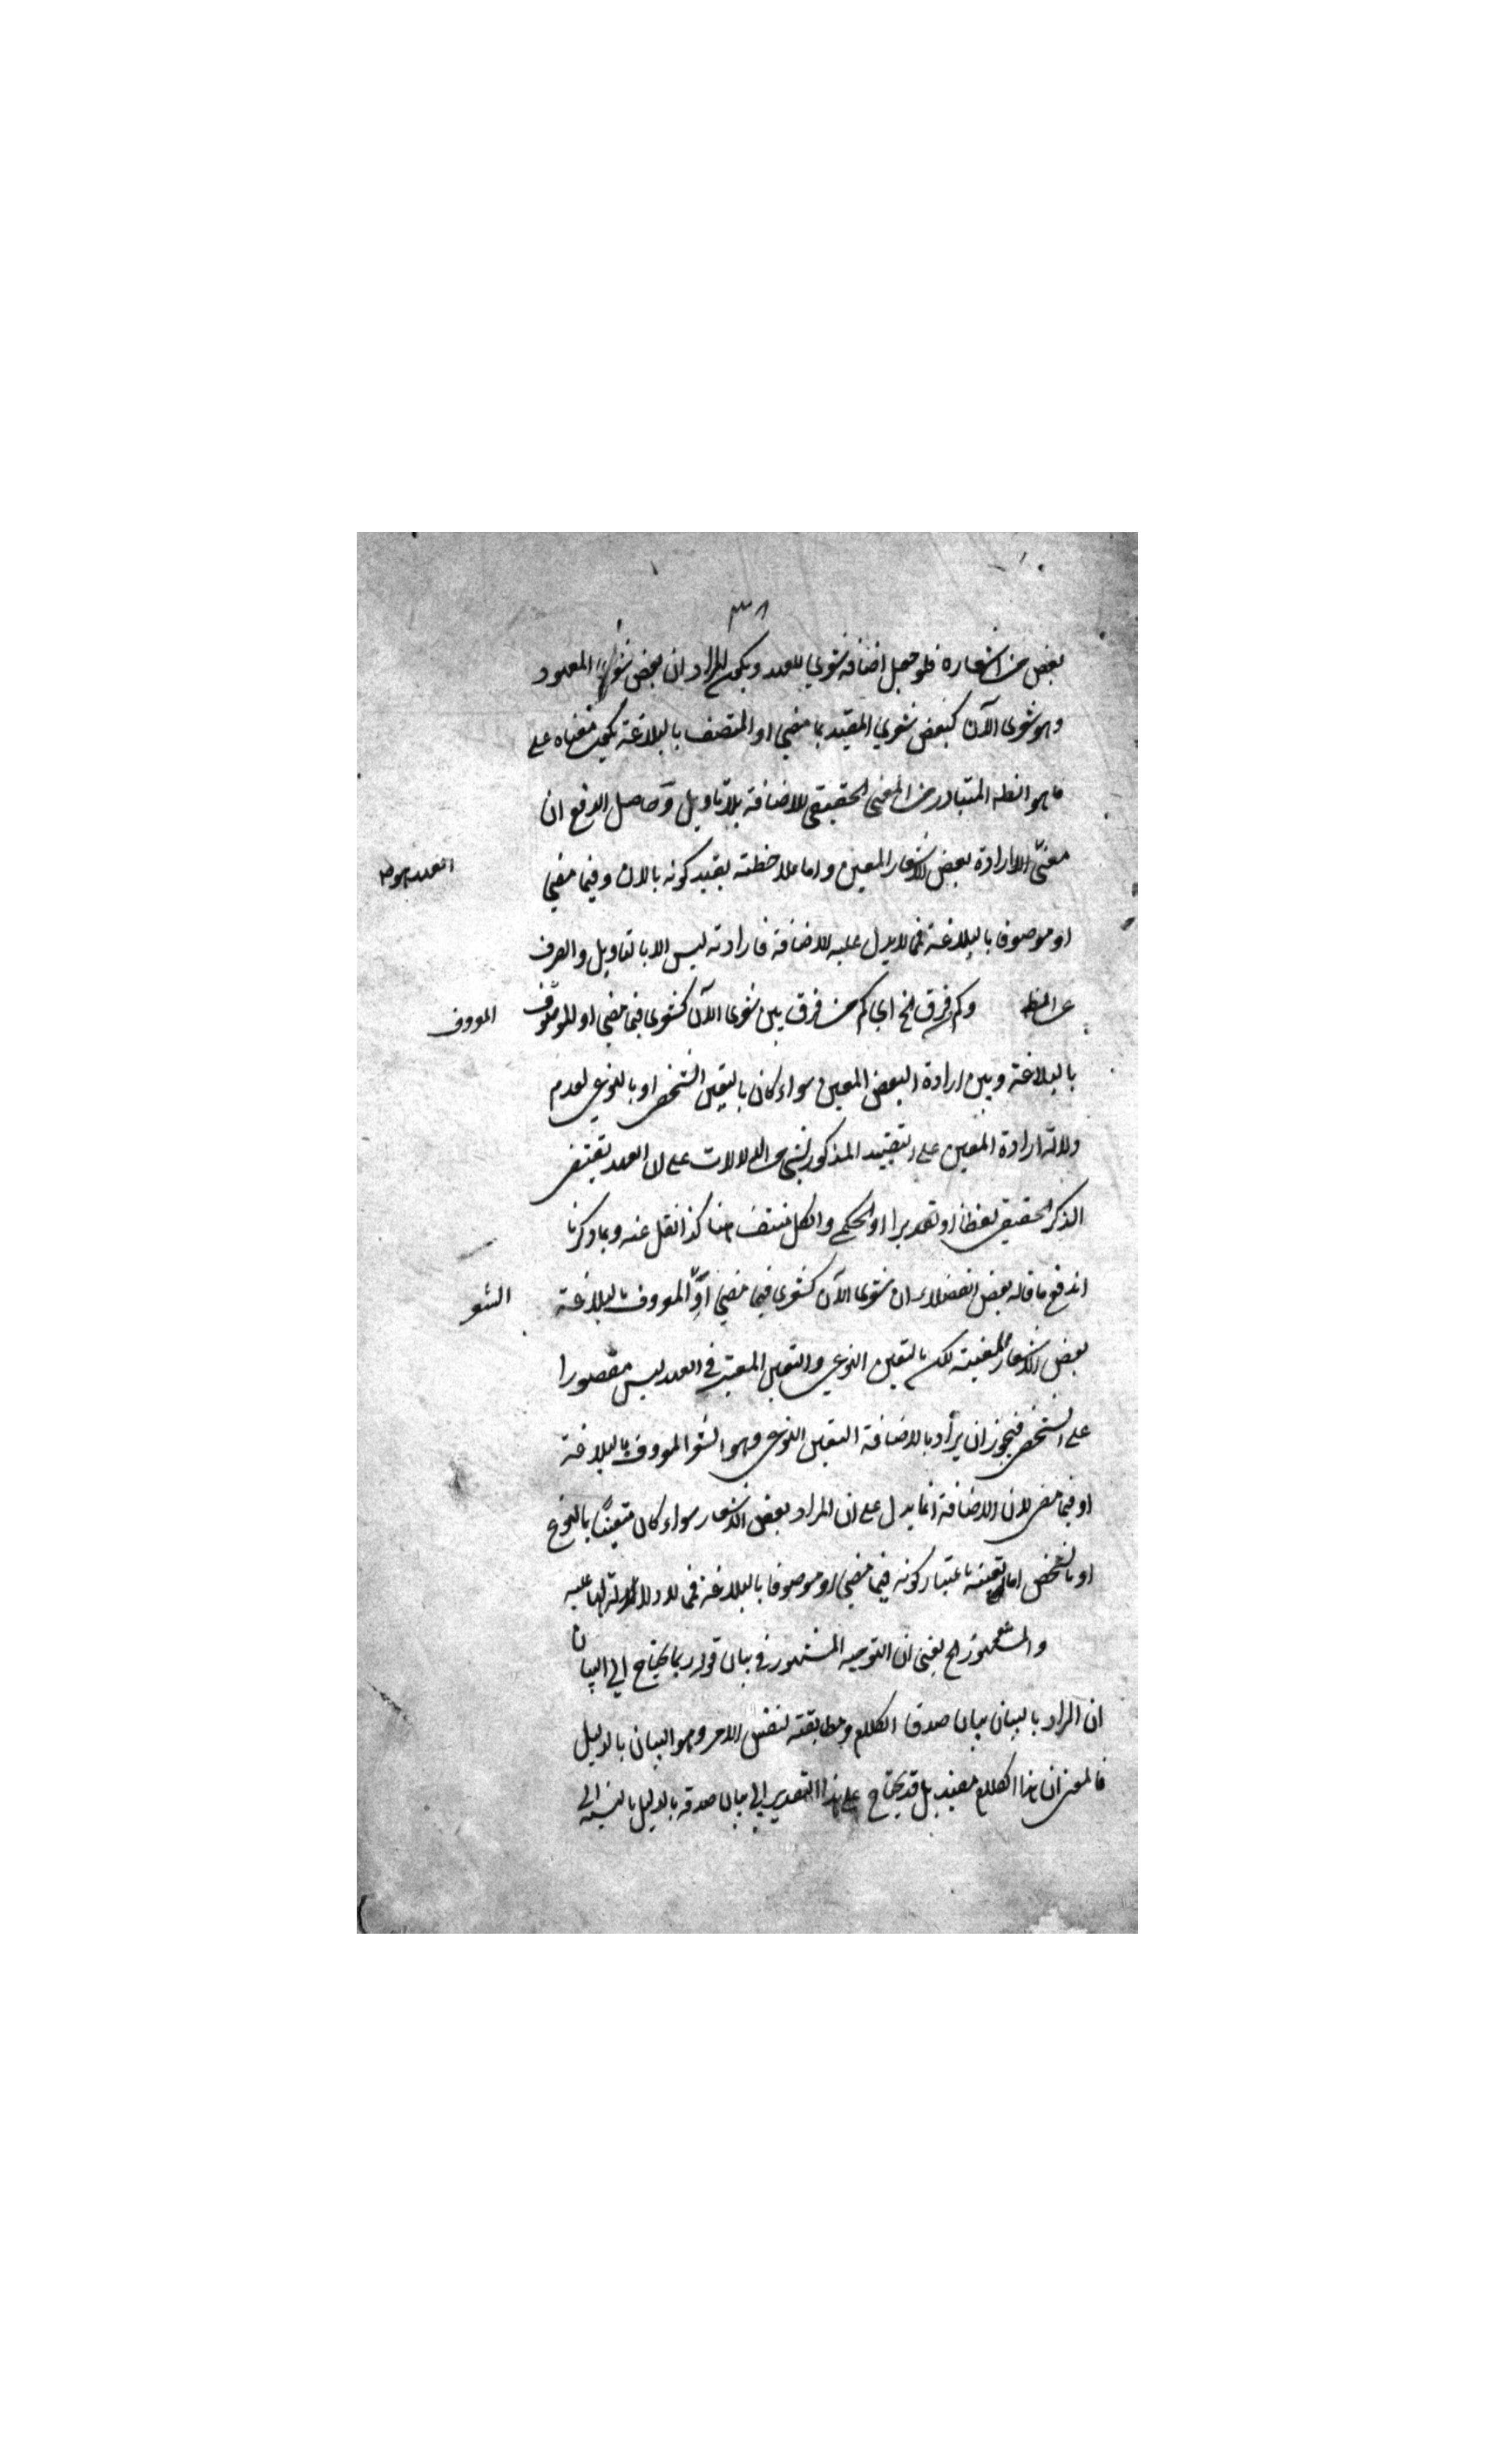 بعض من اشعاره فلو جعل اضافة شعري للعهد ويكون المراد ان بعض شعري المعهود
وهو شعرى الآن كبعض شعري المقيد بما مضي او المتصف بالبلاغة يكون معناه على
ما هو الظه المتبادر من المعنى الحقيقي للاضافة بلا تاويل وحاصل الدفع ان
معنى الارادة بعض الاشعار المعين واما ملاحظته بقيد كونه بالان وفيما مضي
العهد هو
او موصوفا بالبلاغة فمما لا يدل عليه الاضافة فارادته ليس الا بالتاويل والصرف
عن الظه وكم فرق الخ اي كم من فرق بين شعرى الآن كشعرى فيما مضي او الموصوف
المعروف
بالبلاغة وبين ارادة البعض المعين سواء كان بالتعين الشخصى او بالنوعي لعدم
دلالة ارادة المعين على التقييد المذكور بشئ من الدلالات على ان العهد يقتضى
الذكر الحقيقى لفظا او تقديرا او الحكمى والكل منتف هنا كذا نقل عنه وبما ذكرنا
اندفع ما قاله بعض الفضلاء ان شعرى الآن كشعرى فيما مضي او المعروف بالبلاغة
الشعر
بعض الاشعار المعينة لكن بالتعين النوعي والتعين المعتبر في العهد ليس مقصورا
على الشخصى فيجوز ان يراد بالاضافة التعين النوعى وهو الشعر المعروف بالبلاغة
او فيما مضى لان الاضافة انما يدل على ان المراد بعض الاشعار سواء كان متعينا بالنوع
او بالشخص اما تعينه باعتبار كونه فيما مضي او موصوفا بالبلاغة فمما لا دلالة لها عليه
والمشهور الخ يعنى ان التوجيه المشهور في بيان قوله ربما يحتاج الي البيان
ان المراد بالبيان بيان صدق الكلام ومطابقته لنفس الامر وهو البيان بالدليل
فالمعنى ان هذا الكلام مفيد بل قد يحتاج على هذا التقدير الي بيان صدقه بالدليل بالنسبة الى